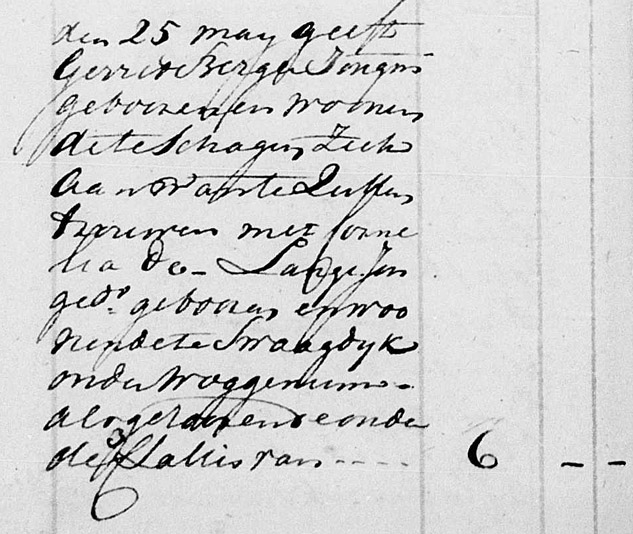 den 25 may geeft
Gerrit Berger Jongm
gebooren en woonen
de te Schagen Zich
Aan van te Zullen
trouwen met Corne
lia de Lange Jon
ged: gebooren en woo
nende te Swaagdyk
onder Woggenum -
alo gerenvende onder
de 3 Classis van - - - - 6 - -